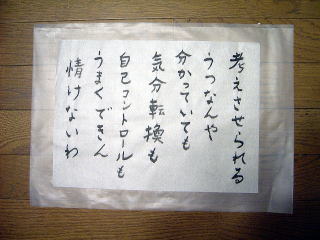 考えさせられる
うつなんや
分かっていても
気分転換も
自己コントロールも
うまくできん
情けないわ